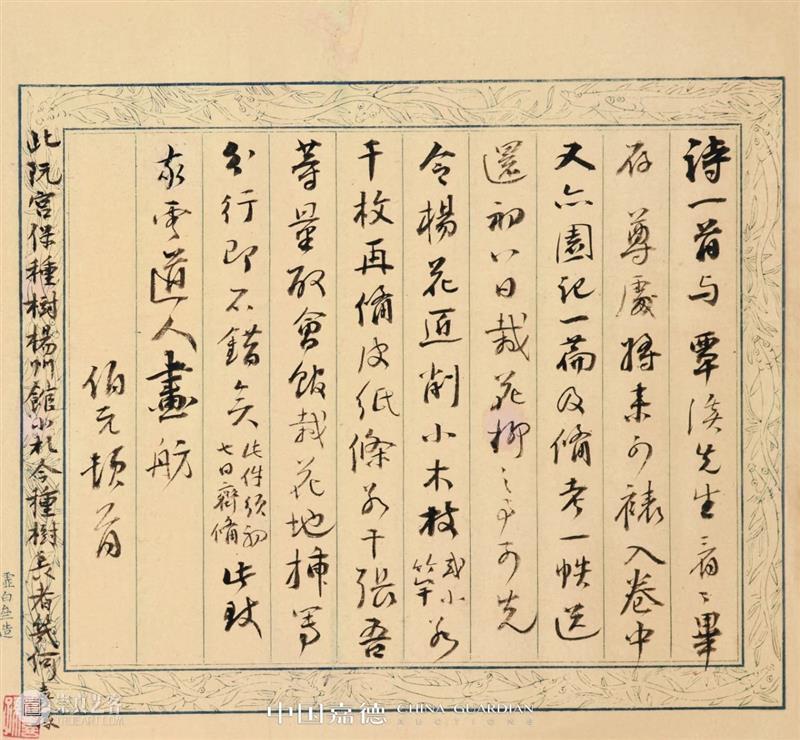 詩一首与覃溪先生看〻畢
存尊處將来可裱入卷中
又園記一篇及備考一帙送
還初八日栽花柳之事可先
令楊花匠削小木枝或小竹竿若
干枚再備皮紙條若干張吾
等量取會館栽花地插写
分行即不錯矣此件須初七日齊備此致
道人畫舫
伯元頓首
此阮宫保種樹楊州館小札今種樹長者幾何
虛白齋造
崇真艺客
中国嘉德 CHINA GUARDIAN
AUCTIONS